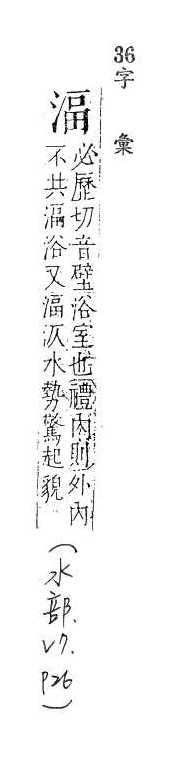 36字彙
湢
必歷切音壁浴室也禮內則外內
不共湢浴又湢㳁水勢驚起貌
(水部.V7.P26)